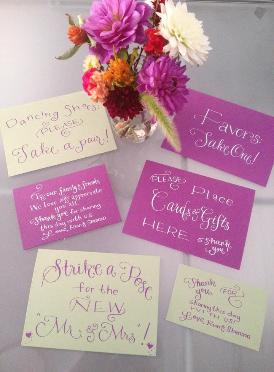 Dancing Shoes!
(PLEASE)
Take a pair!
Favors
Take One!
To our family & friends
We love and appreciate
you all!
Thank you for sharing
this day with us
Love,
PLEASE Place
Cards & Gifts
HERE
thank you
Strike a Pose
for the
NEW
"Mr. & Mrs."!
Thank
you FOR
Sharing this day
WITH US!
Love,